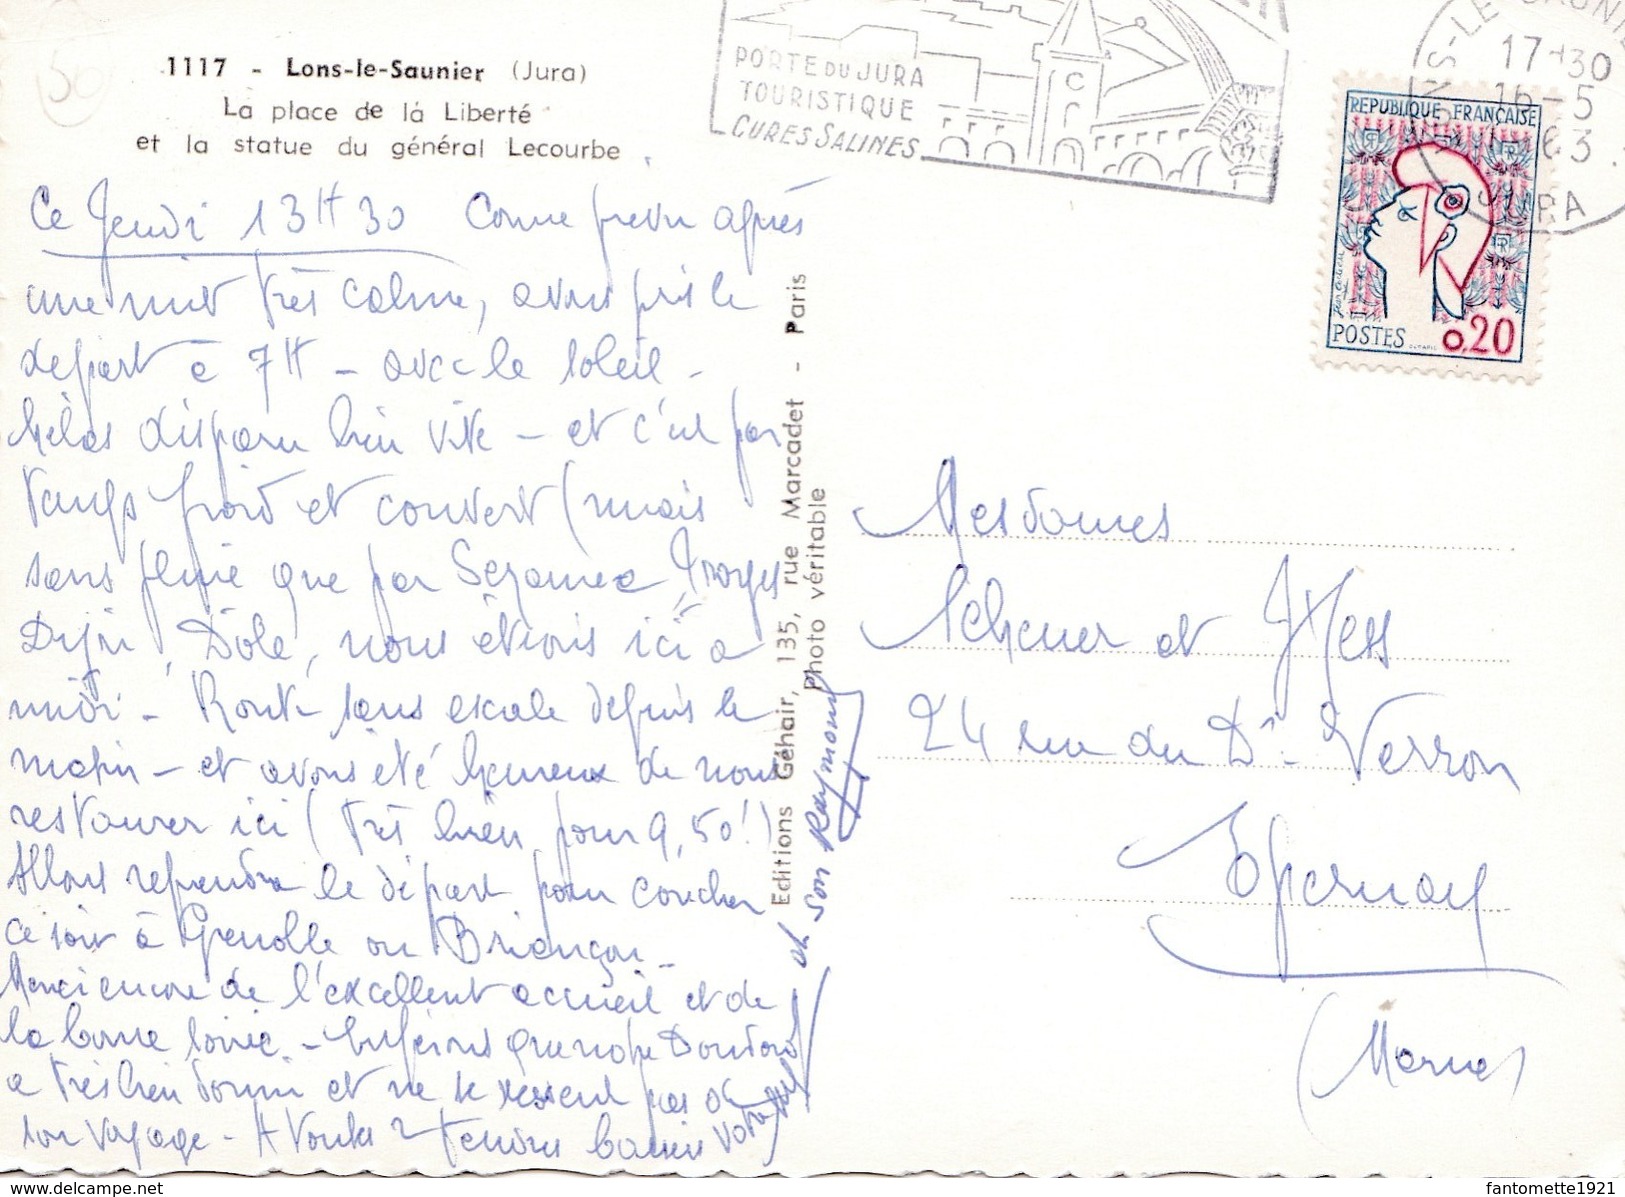 50
1117 - Lons-le-Saunier (Jura)
La place de la Liberté
et la statue du général Lecourbe
PORTE DU JURA
TOURISTIQUE
CURES SALINES
17-30
16-5
63
JURA
REPUBLIQUE FRANÇAISE
POSTES 0,20
Ce Jeudi 13H30 Comme prévu après
une nuit très calme, avons pris le
départ à 7H - avec le soleil -
hélas disparu bien vite - et c'est par
temps froid et couvert (mais
sans pluie que par Sézanne, Troyes
Dijon, Dôle, nous étions ici à
midi - Route sans escale depuis le
matin - et avons été heureux de nous
restaurer ici (très bien pour 9,50!)
Allons reprendre le départ pour coucher
ce soir à Grenoble ou Briançon -
Merci encore de l'excellent accueil et de
la bonne soirée - Espérons que notre Doudou
a très bien dormi et ne se ressent pas de
son voyage - A toutes 2 tendres baisers
et son Raymond
Editions Géhair, 135, rue Marcadet - Paris
Photo véritable
Mesdames
Scheuer et Hess
24 rue du Dr Verron
Epernay
(Marne)
fantomette1921